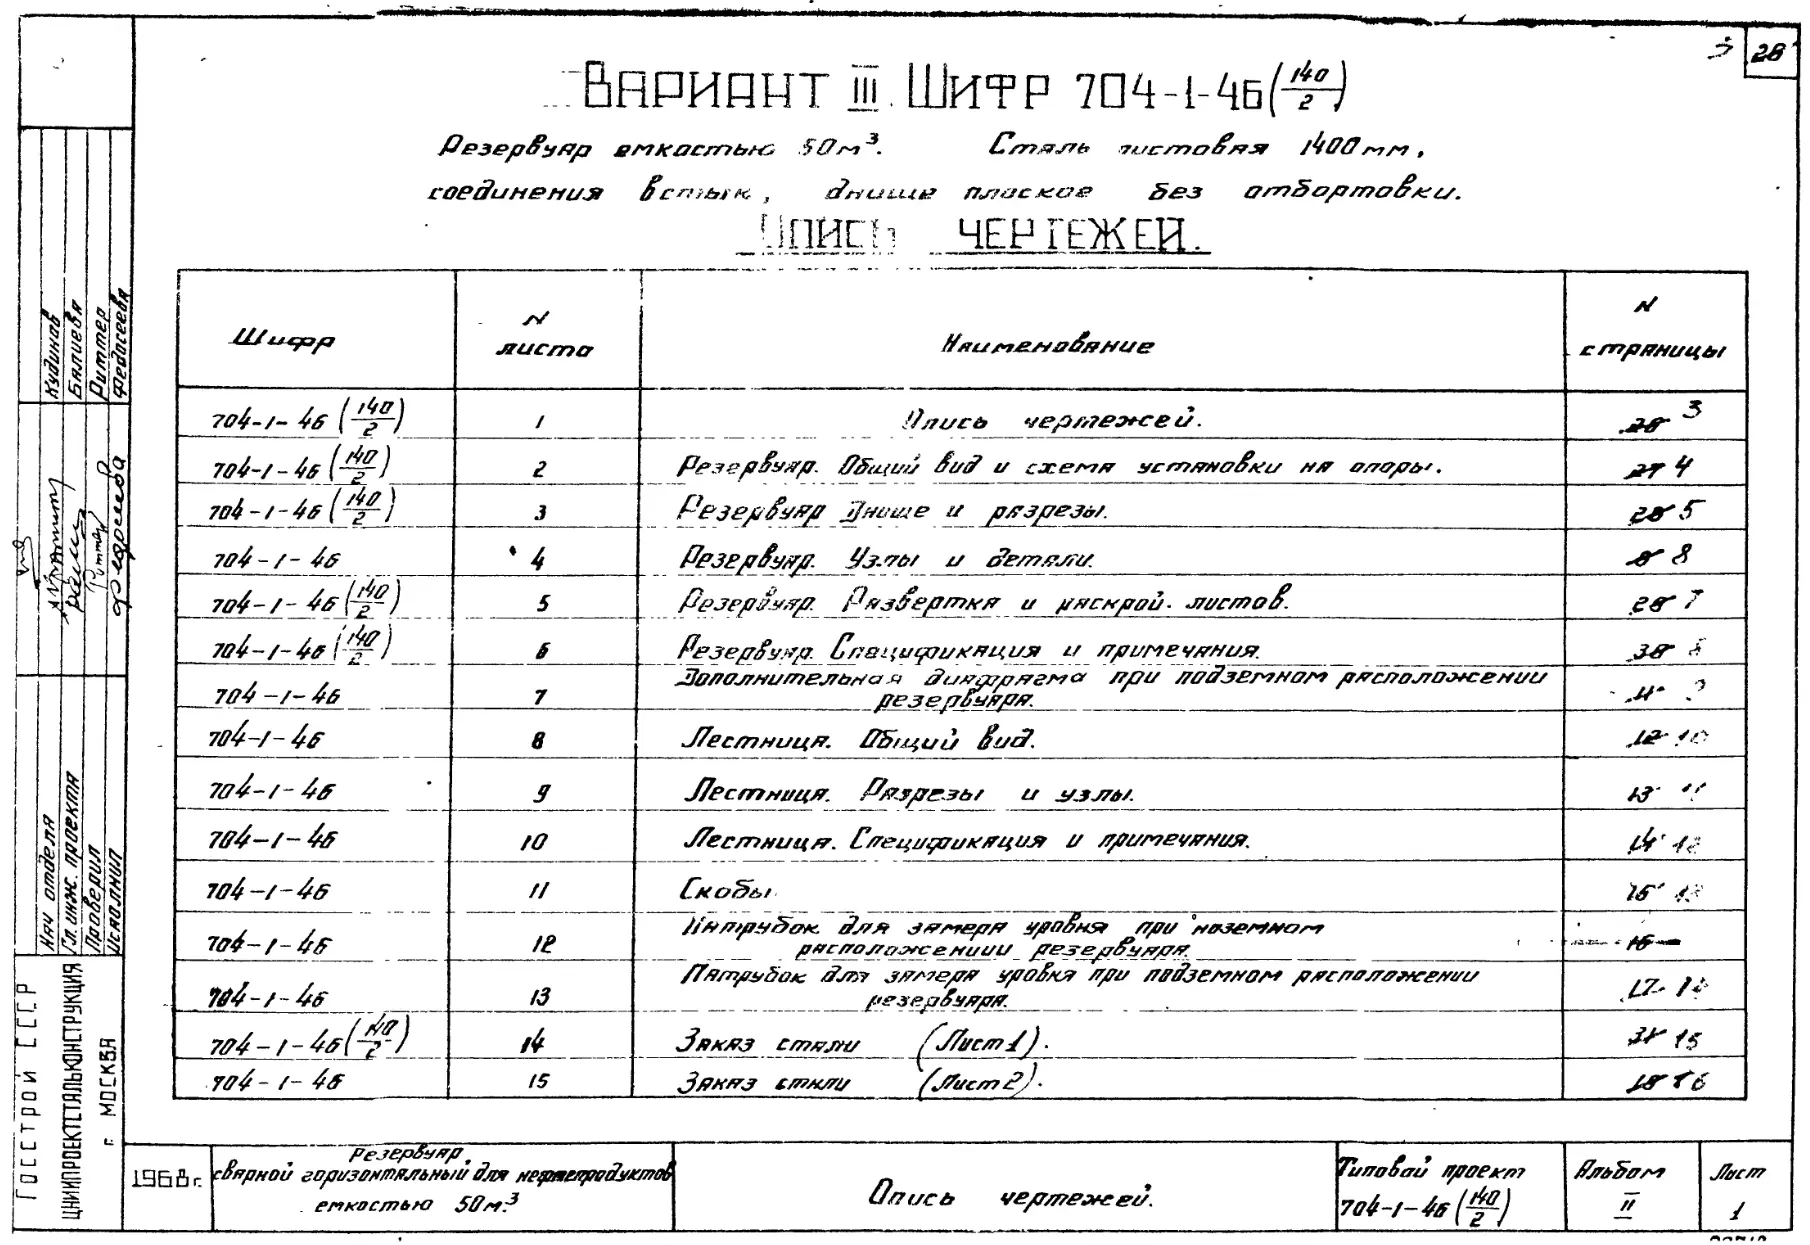 3 28
Вариант III. Шифр 704-1-46(140/2)
Резервуар емкостью 50м³. Сталь листовая 1400мм,
соединения встык, днище плоское без отбортовки.
Опись чертежей.
Шифр
N листа
Наименование
N страницы
704-1-46 (140/2) 1 Опись чертежей. 28 3
704-1-46 (140/2) 2 Резервуар. Общий вид и схема установки на опоры. 27 4
704-1-46 (140/2) 3 Резервуар Днище и разрезы. 28 5
704-1-46 4 Резервуар. Узлы и детали. 8 8
704-1-46 (140/2) 5 Резервуар. Развертка и раскрой листов. 28 7
704-1-46 (140/2) 6 Резервуар. Спецификация и примечания. 30 8
704-1-46 7 Дополнительная диафрагма при подземном расположении
резервуара. 11 9
704-1-46 8 Лестница. Общий вид. 12 10
704-1-46 9 Лестница. Разрезы и узлы. 13 11
704-1-46 10 Лестница. Спецификация и примечания. 14 12
704-1-46 11 Скобы 15 13
704-1-46 12 Патрубок для замера уровня при наземном
расположениии резервуара. 16 —
704-1-46 13 Патрубок для замера уровня при подземном расположении
резервуара. 17 14
704-1-46 (140/2) 14 Заказ стали (Лист 1). 31 15
704-1-46 15 Заказ стали (Лист 2). 18 16
Кудинов
Балиева
Риттер
Федосеева
Нач отдела
Гл. инж. проекта
Проверил
Исполнил
Госстрой СССР
ЦНИИПРОЕКТСТАЛЬКОНСТРУКЦИЯ
г. МОСКВА
1968г.
Резервуар
сварной горизонтальный для нефтепродуктов
емкостью 50м³
Опись чертежей.
Типовой проект
704-1-46 (140/2)
Альбом
II
Лист
1